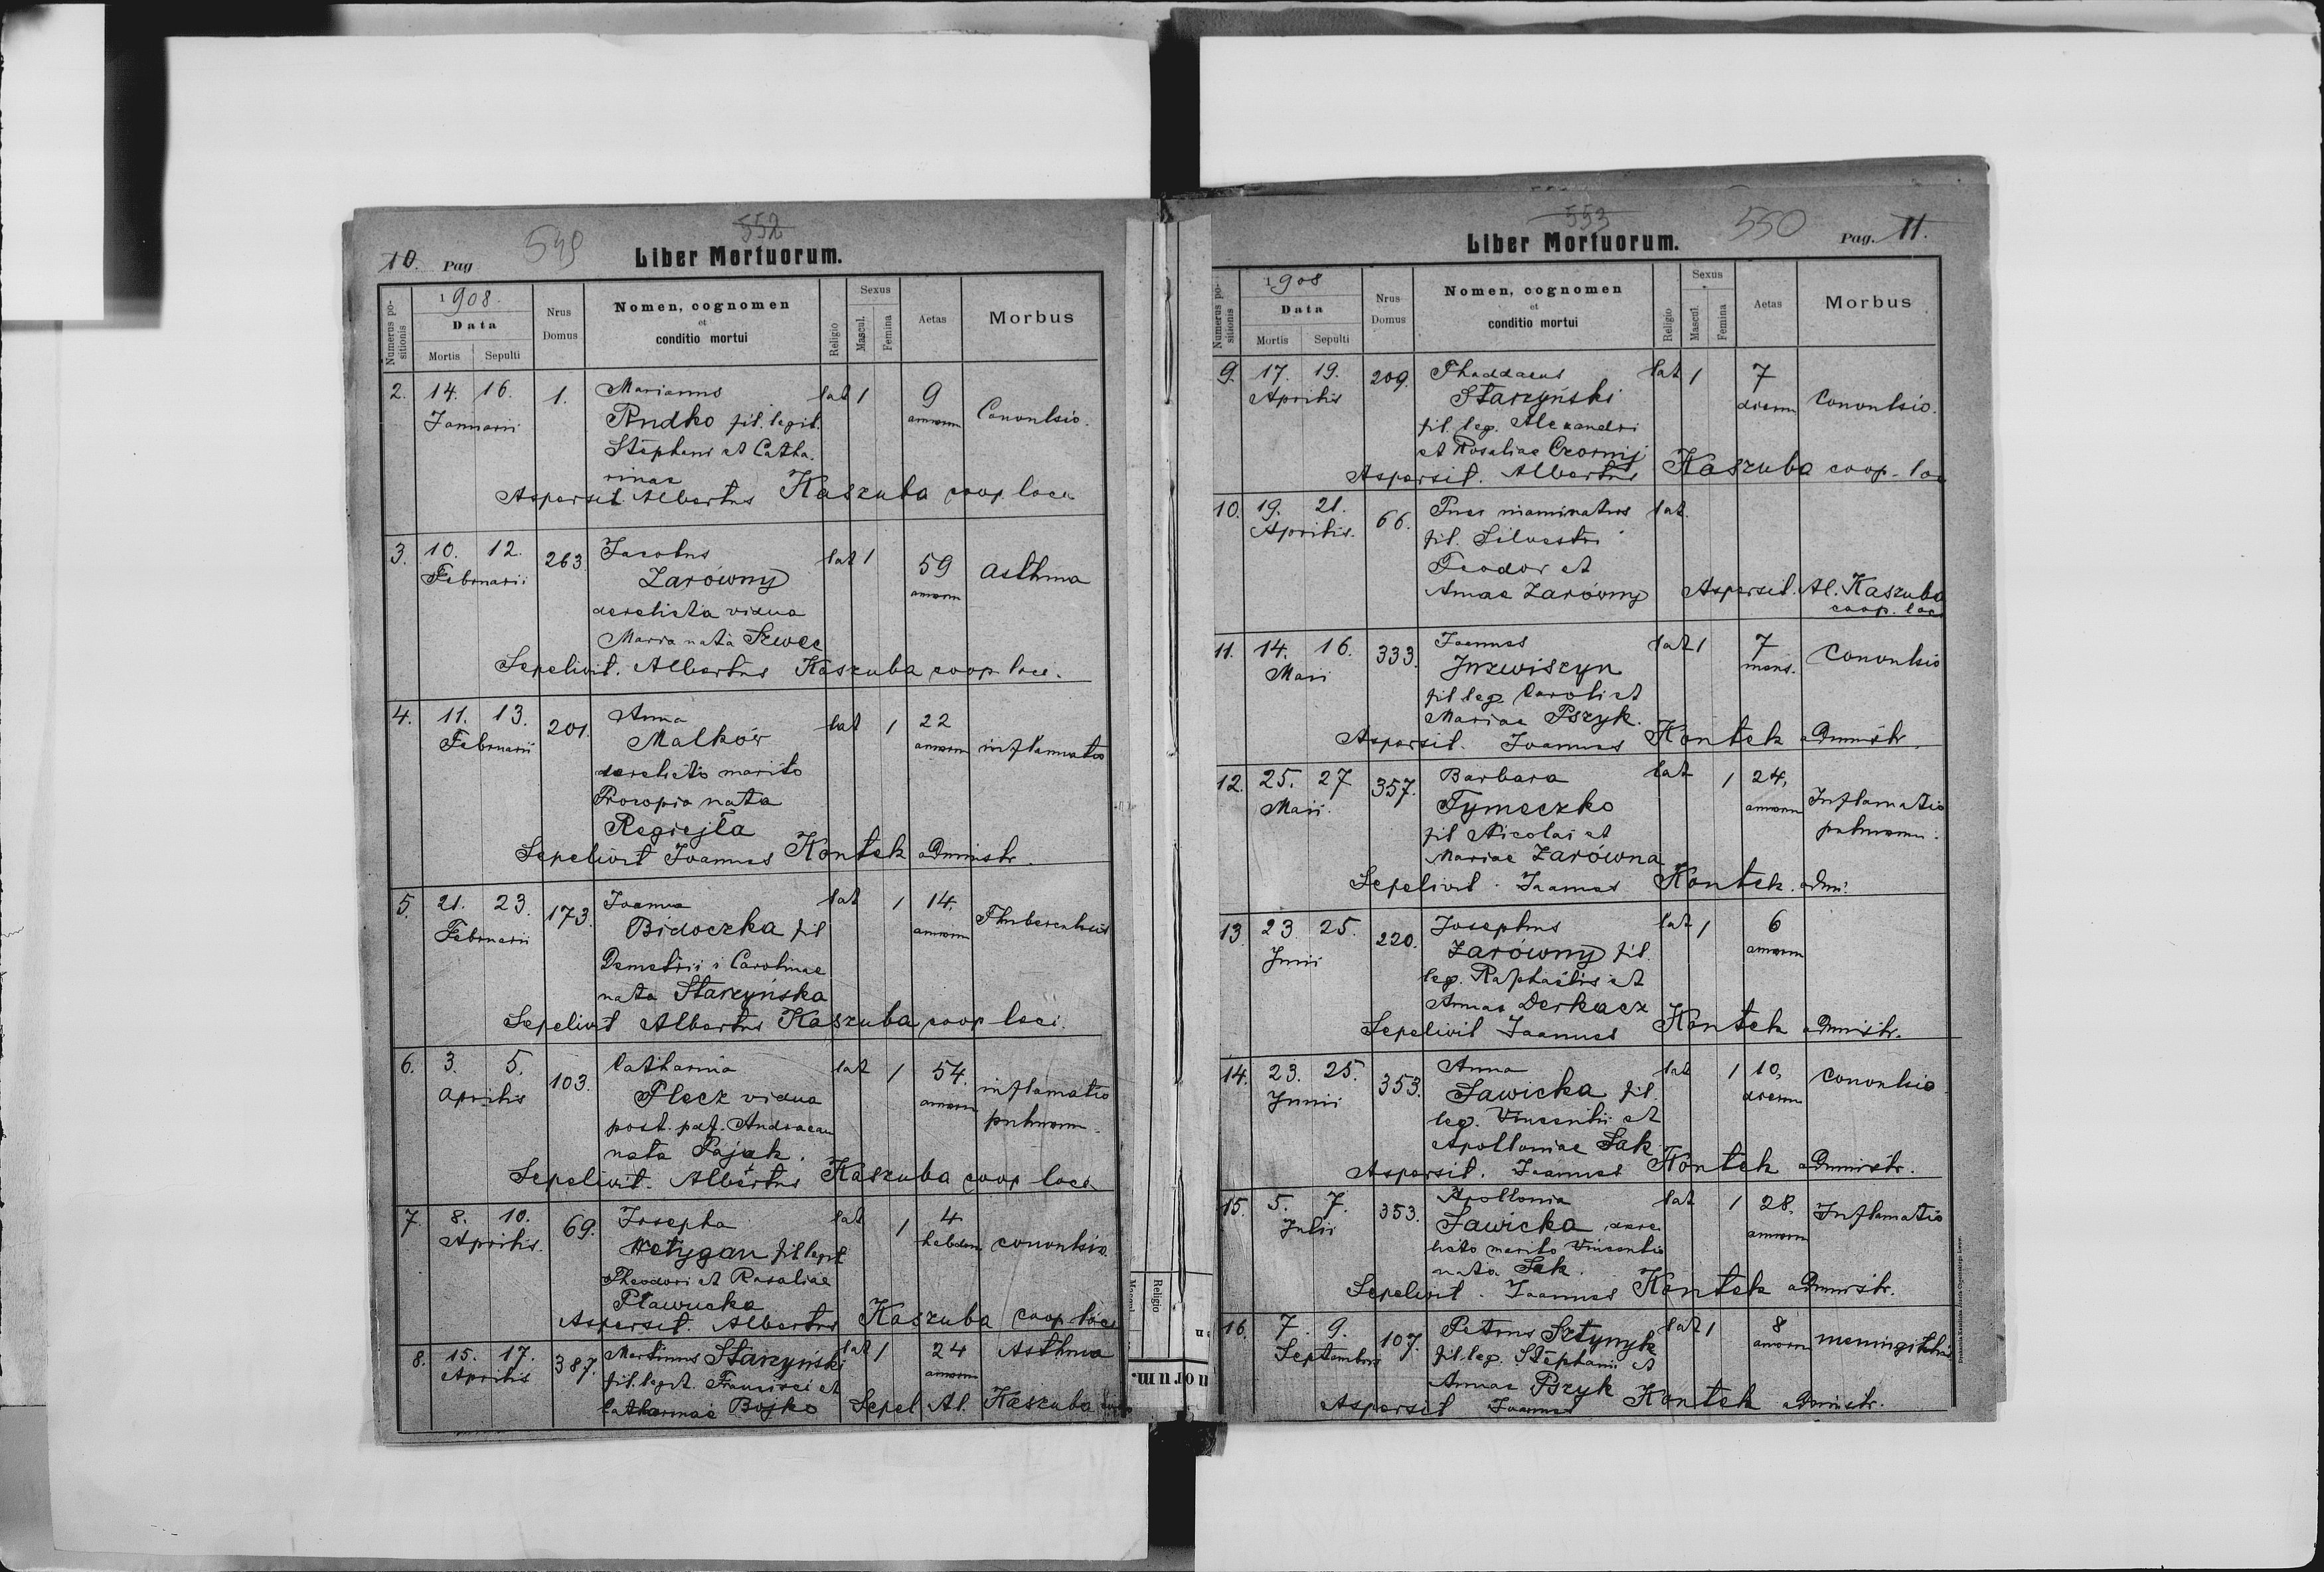 10. Pag
549
552
Liber Mortuorum.
Numerus positionis
1908.
Data
Mortis Sepulti
Nrus Domus
Nomen, cognomen
et
conditio mortui
Religio
Sexus
Mascul. Femina
Aetas
Morbus
2. 14. 16. 1. Marianus lat 1 9 Conoulsio.
Januarii Rudko fil. legit. annorum
Stephani et Catha-
rinae
Aspersit Albertus Kaszuba coop. loci
3. 10. 12. 263. Jacobus lat 1 59 asthma
Februarii Zarówny annorum
derelicta vidua
Maria nata Szwec
Sepelivit. Albertus Kaszuba coop loci.
4. 11. 13. 201. Anna lat 1 22
Februarii Malków annorum inflammatio
derelicto marito
Procopio nata
Regiejła
Sepelivit Joannes Kontek administr.
5. 21. 23. 173. Joanna lat 1 14.
Februarii Bidoczka fil annorum Thuberculosis
Demetrii i Carolinae
nata Starzyńska
Sepelivit Albertus Kaszuba coop loci.
6. 3. 5. 103. Catharina lat 1 54.
Aprilis Plecz vidua annorum inflamatio
post. def. Andraeam pulmonum.
nata Pająk.
Sepelivit. Albertus Kaszuba coop loci
7. 8. 10. 69. Josepha lat 1 4
Aprilis. Wetygan fil legit hebdom conoulsio.
Theodori et Rosaliae
Pławucka
Aspersit. Albertus Kaszuba coop loci
8. 15. 17. 387. Martinus Starzyński lat 1 24 Asthma
Aprilis fil. legit. Francisci et annorum
Catharinae Bojko Sepel Al. Kaszuba
553
550
Liber Mortuorum.
Pag. 11.
Numerus positionis
1908
Data
Mortis Sepulti
Nrus Domus
Nomen, cognomen
et
conditio mortui
Religio
Sexus
Mascul. Femina
Aetas
Morbus
9. 17. 19. 209. Thaddaeus lat 1 7
Aprilis Starzyński dierum Conoulsio.
fil. leg. Alexandri
et Rosaliae Czornij
Aspersit. Albertus Kaszuba coop. loc
10. 19. 21. 66. Puer innominatus lat.
Aprilis. fil. Silvestri
Teodor et
Annae Zarówny Aspersit. Al. Kaszuba
coop. loci
11. 14. 16. 333. Joannes lat 1 7 Conoulsio
Maii Juzwiszyn mens.
fil leg. Caroli et
Mariae Pszyk.
Aspersit. Joannes Kontek administr.
12. 25. 27 357. Barbara lat 1 24. Inflamatio
Maii. Tymeczko annorum pulmonu.
fil Nicolai et
Mariae Zarówna
Sepelivit. Joannes Kontek. adm.
13. 23. 25. 220. Josephus lat 1 6
Junii Zarówny fil. annorum
leg. Raphaëlis et
Annae Derkacz
Sepelivit Joannes Kontek administr.
14. 23. 25. 353. Anna lat 1 10. conoulsio
Junii Sawicka fil. dierum
leg. Vincentii et
Apolloniae Sak
Aspersit. Joannes Kontek administr.
15. 5. 7. 353. Apollonia lat 1 28. Inflamatio
Julii Sawicka dere- annorum
licto marito Vincentio
nata Sak.
Sepelivit. Joannes Kontek administr.
16. 7. 9. 107. Petrus Sztymyk lat 1 8 meningithis
Septembris fil. leg. Stephani et annorum
Annae Pszyk
Aspersit Joannes Kontek administr.
Religio
Mascul.
uorum.